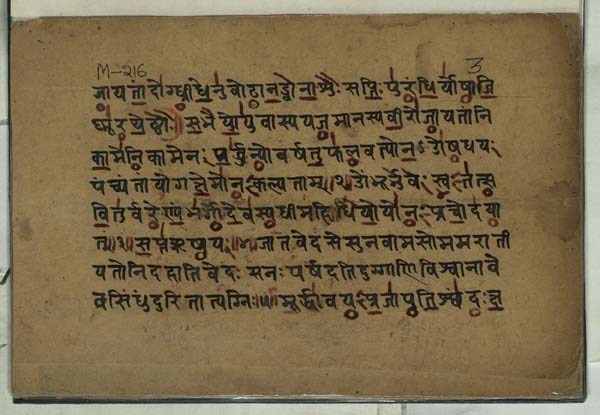 M-216
3
जायतांदोग्ध्रीधेनुर्वोढानड्वानाशुःसप्तिःपुरंधिर्योषाजि
ष्णूरथेष्ठाः सभेयोयुवास्ययजमानस्यवीरोजायतांनि
कामेनिकामेनःपर्जन्योवर्षतुफलवत्योनऽओषधयः
पच्यंतांयोगक्षेमोनःकल्पताम्॥२॥ॐभूर्भुवःस्वःतत्स
वितुर्वरेण्यंभर्गोदेवस्यधीमहिधियोयोनःप्रचोदया
त्॥३॥सप्तऋषयः॥४॥जातवेदसेसुनवामसोममराती
यतोनिदहातिवेदःसनःपर्षदतिदुर्गाणिविश्वानावे
वसिंधुंदुरितात्यग्निः॥५॥मूर्द्धावयःप्रजापतिश्छंदःक्ष